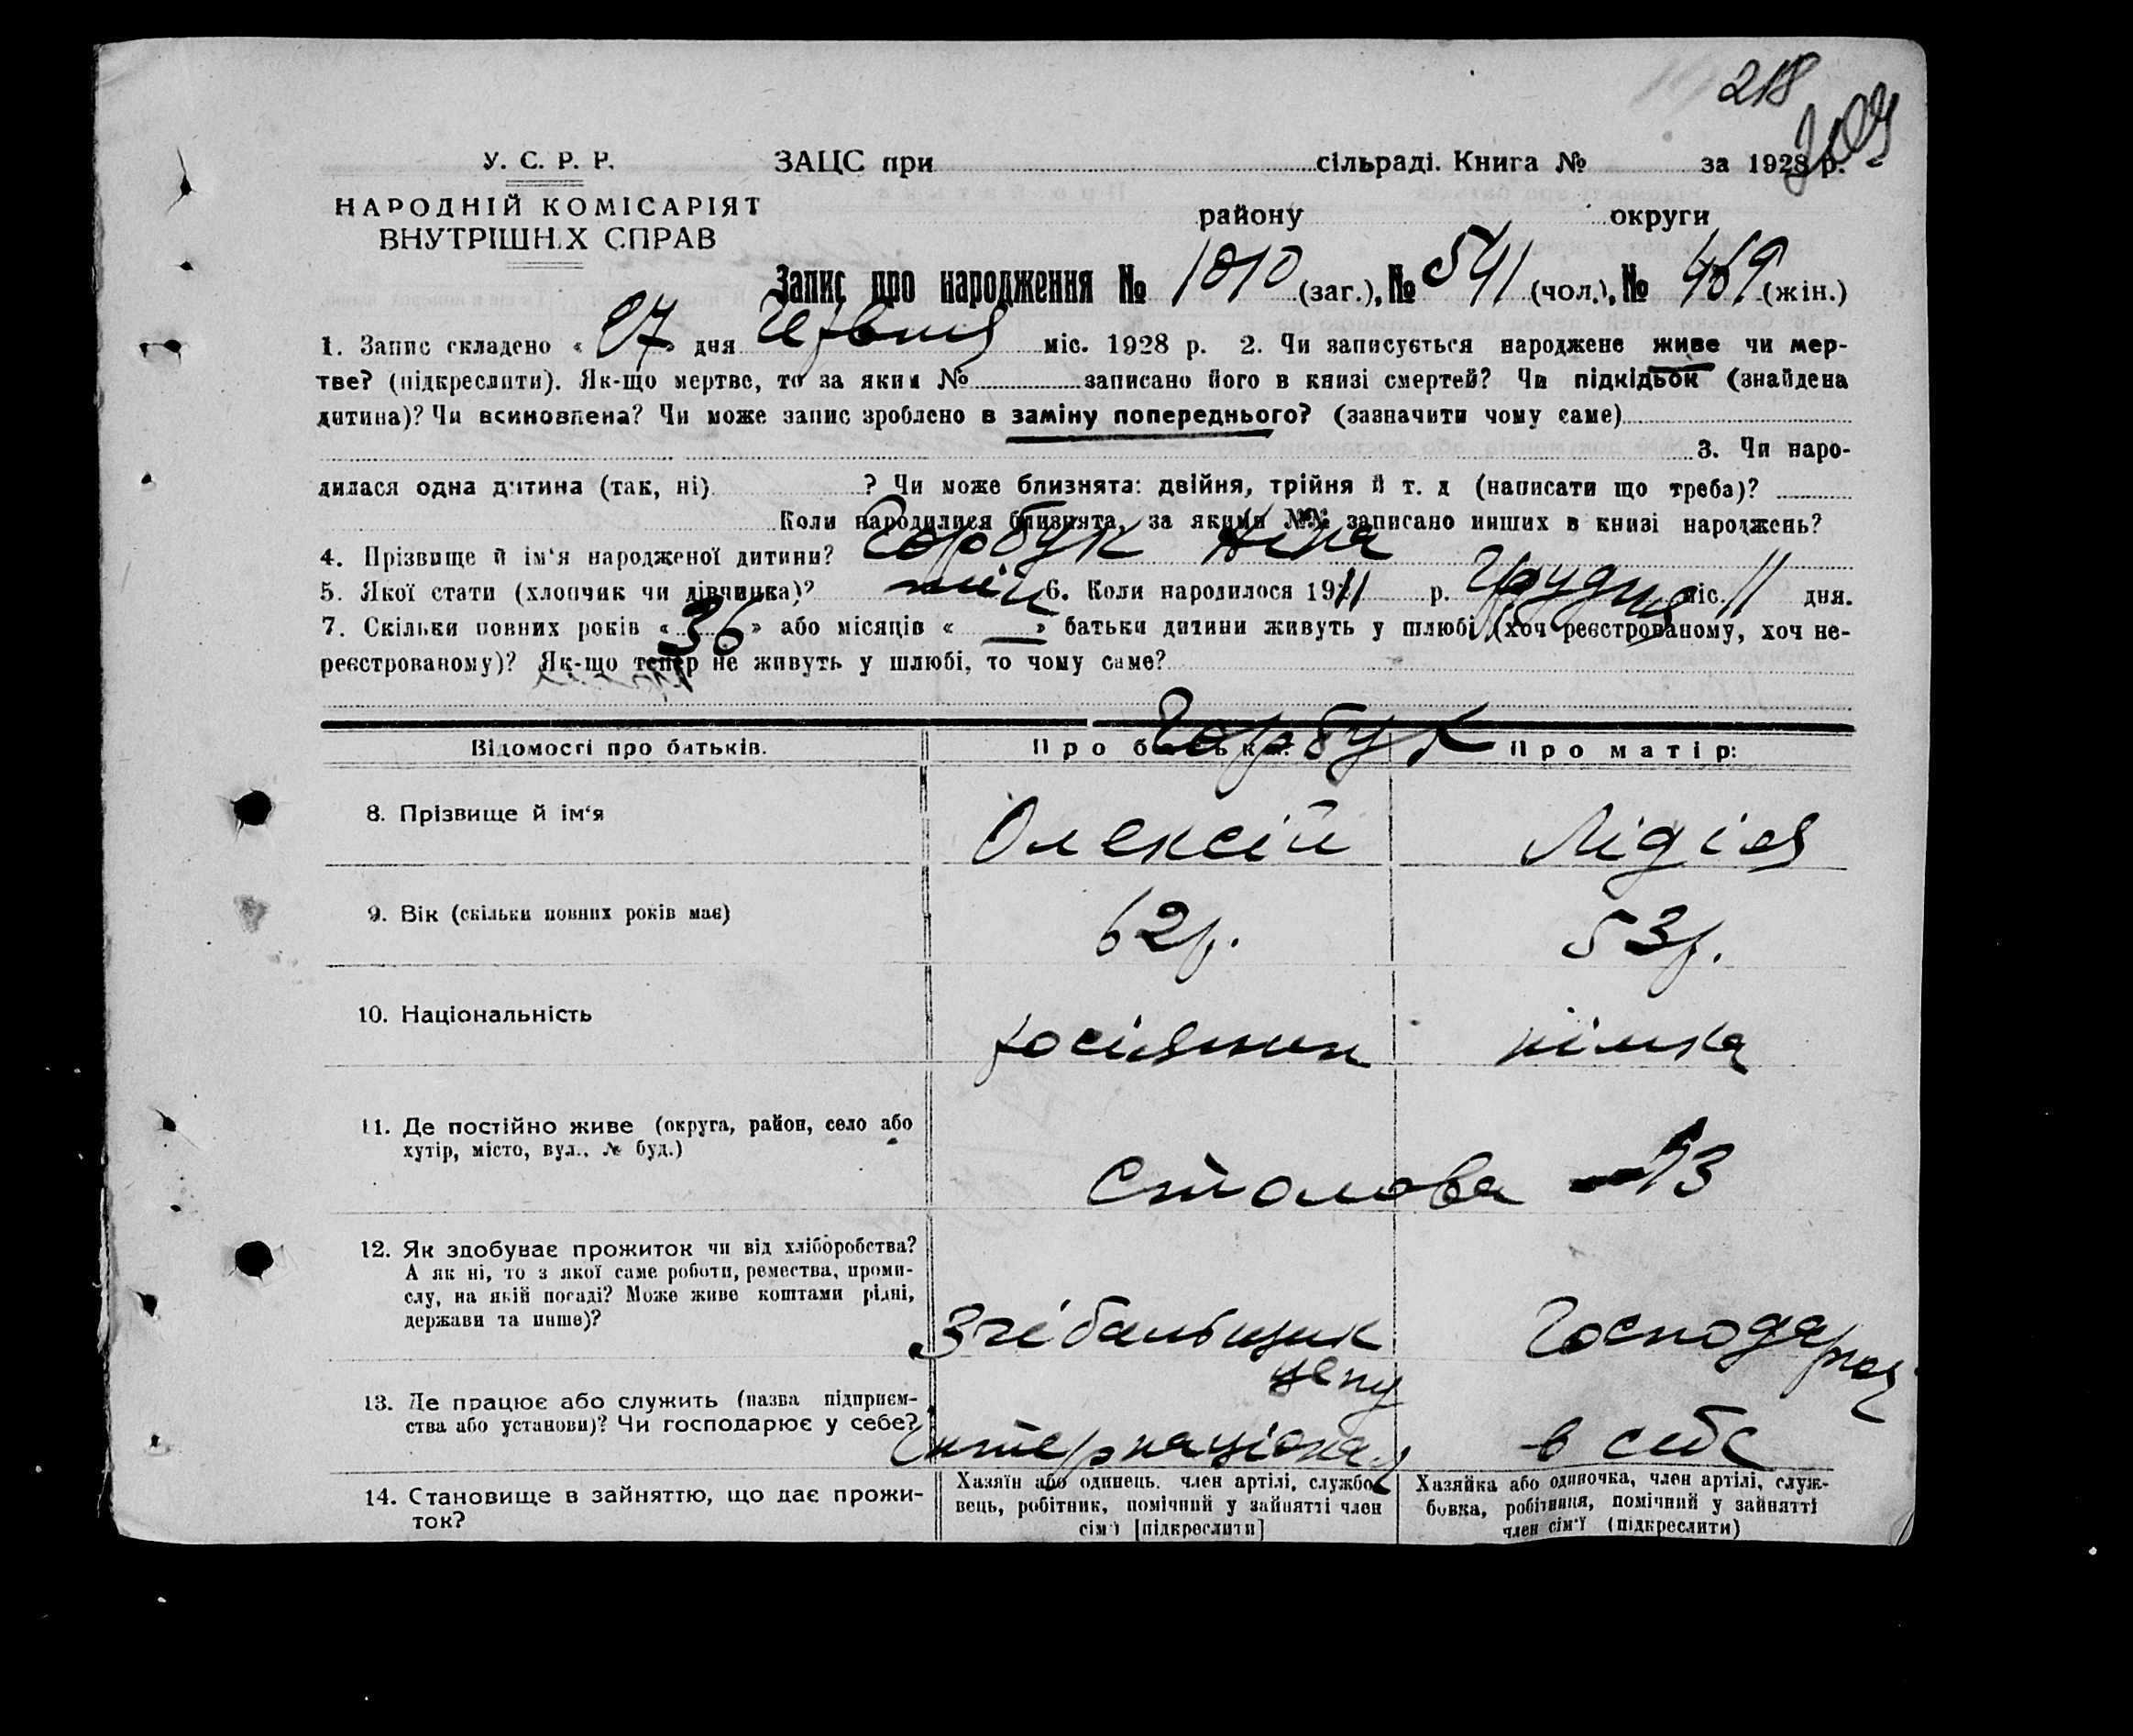 218
У. С. Р. Р.
ЗАЦС при сільраді. Книга № за 1928 р.
НАРОДНІЙ КОМІСАРІЯТ
ВНУТРІШНІХ СПРАВ
району округи
Запис про народження № 1010 (заг.), № 541 (чол.), № 469 (жін.)
1. Запис складено « 27 » дня Червня міс. 1928 р. 2. Чи записується народжене живе чи мер-
тве? (підкреслити). Як-що мертве, то за яким № записано його в книзі смертей? Чи підкідьок (знайдена
дитина)? Чи всиновлена? Чи може запис зроблено в заміну попереднього? (зазначити чому саме)
3. Чи наро-
дилася одна дитина (так, ні) ? Чи може близнята: двійня, трійня й т. д (написати що треба)?
Коли народилися близнята, за якими №№ записано инших в книзі народжень?
4. Прізвище й ім'я народженої дитини? Горбук Ніна
5. Якої стати (хлопчик чи дівчинка)? жін 6. Коли народилося 1911 р. Грудня міс. 11 дня.
7. Скільки повних років « 36 » або місяців « — » батьки дитини живуть у шлюбі (хоч реєстрованому, хоч не-
реєстрованому)? Як-що тепер не живуть у шлюбі, то чому саме?
Горбук
Відомості про батьків. Про батька: Про матір:
8. Прізвище й ім'я Олексій Лідія
9. Вік (скільки повних років має) 62 р. 53 р.
10. Національність росіянин німка
11. Де постійно живе (округа, район, село або
хутір, місто, вул., № буд.)
Столова — 13
12. Як здобуває прожиток чи від хліборобства?
А як ні, то з якої саме роботи, ремества, проми-
слу, на якій посаді? Може живе коштами рідні,
держави та инше)?
Згібальщик Господарює
цепу
13. Де працює або служить (назва підприєм-
ства або установи)? Чи господарює у себе?
Интернаціонал в себе
14. Становище в зайняттю, що дає прожи-
ток?
Хазяїн або одинець, член артілі, службо-
вець, робітник, помічний у зайнятті член
сім'ї [підкреслити]
Хазяйка або одиночка, член артілі, служ-
бовка, робітниця, помічний у зайнятті
член сім'ї (підкреслити)